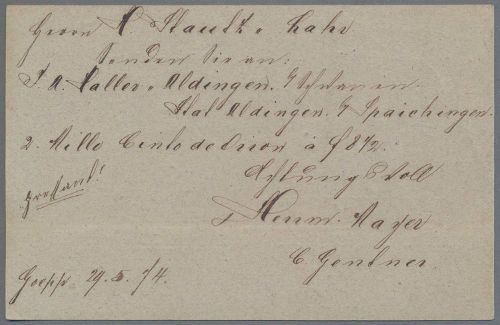 Herrn C Staudt, Lahr
Senden Sie an:
J. A. Haller, Aldingen, z Schwanen.
Stat Aldingen, Spaichingen.
2. Mille Cinto de Orion à f 8 1/2.
Achtungsvoll
Herm. Mayer
C. Gentner
Goepp 29. 5. 74.